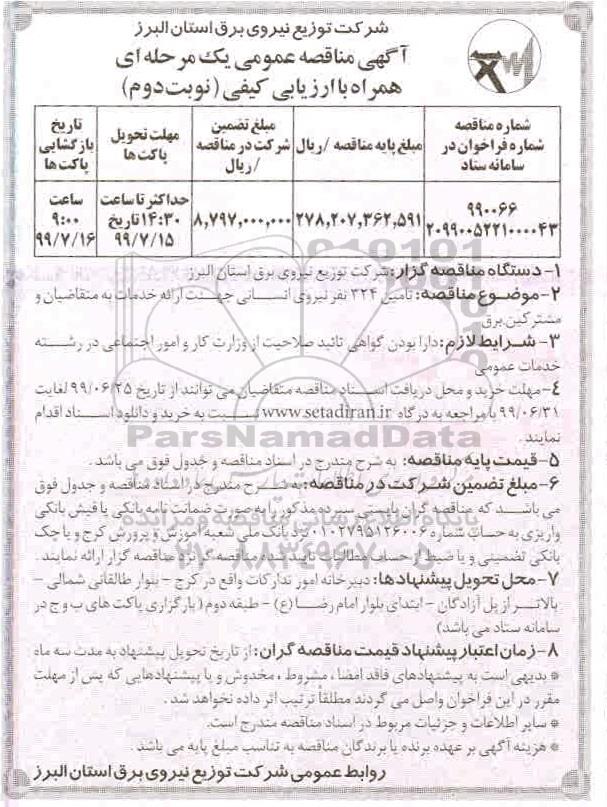 شرکت توزیع نیروی برق استان البرز
آگهی مناقصه عمومی یک مرحله ای
همراه با ارزیابی کیفی (نوبت دوم)
شماره مناقصه شماره فراخوان در سامانه ستاد
مبلغ پایه مناقصه /ریال
مبلغ تضمین شرکت در مناقصه /ریال
مهلت تحویل پاکت ها
تاریخ بازگشایی پاکت ها
۹۹۰۰۶۶
۲۰۹۹۰۰۵۲۲۱۰۰۰۰۴۳
۲۷۸,۲۰۷,۳۶۲,۵۹۱
۸,۷۹۷,۰۰۰,۰۰۰
حداکثر تا ساعت ۱۴:۳۰ تاریخ ۹۹/۷/۱۵
ساعت ۹:۰۰ ۹۹/۷/۱۶
۱- دستگاه مناقصه گزار: شرکت توزیع نیروی برق استان البرز
۲- موضوع مناقصه: تامین ۳۲۴ نفر نیروی انسانی جهت ارائه خدمات به متقاضیان و
مشترکین برق
۳- شرایط لازم: دارا بودن گواهی تائید صلاحیت از وزارت کار و امور اجتماعی در رشته
خدمات عمومی
۴- مهلت خرید و محل دریافت اسناد مناقصه متقاضیان می توانند از تاریخ ۹۹/۰۶/۲۵ لغایت
۹۹/۰۶/۳۱ با مراجعه به درگاه www.setadiran.ir نسبت به خرید و دانلود اسناد اقدام
نمایند.
۵- قیمت پایه مناقصه: به شرح مندرج در اسناد مناقصه و جدول فوق می باشد.
۶- مبلغ تضمین شرکت در مناقصه: به شرح مندرج در اسناد مناقصه و جدول فوق
می باشد که مناقصه گران بایستی سپرده مذکور را به صورت ضمانت نامه بانکی یا فیش بانکی
واریزی به حساب شماره ۰۱۰۲۷۹۵۱۲۶۰۰۶ نزد بانک ملی شعبه آموزش و پرورش کرج و یا چک
بانکی تضمینی و یا ضبط از حساب مطالبات تایید شده مناقصه گر نزد مناقصه گزار ارائه نمایند.
۷- محل تحویل پیشنهادها: دبیرخانه امور تدارکات واقع در کرج - بلوار طالقانی شمالی -
بالاتر از پل آزادگان - ابتدای بلوار امام رضا (ع) - طبقه دوم (بارگزاری پاکت های ب و ج در
سامانه ستاد می باشد)
۸- زمان اعتبار پیشنهاد قیمت مناقصه گران: از تاریخ تحویل پیشنهاد به مدت سه ماه
* بدیهی است به پیشنهادهای فاقد امضا، مشروط، مخدوش و یا پیشنهادهایی که پس از مهلت
مقرر در این فراخوان واصل می گردند مطلقاً ترتیب اثر داده نخواهد شد.
* سایر اطلاعات و جزئیات مربوط در اسناد مناقصه مندرج است.
* هزینه آگهی بر عهده برنده یا برندگان مناقصه به تناسب مبلغ پایه می باشد.
روابط عمومی شرکت توزیع نیروی برق استان البرز
ParsNamadData
پایگاه اطلاع رسانی مناقصه و مزایده